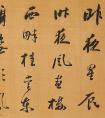 昨夜星辰
昨夜風畫樓
西畔桂堂東